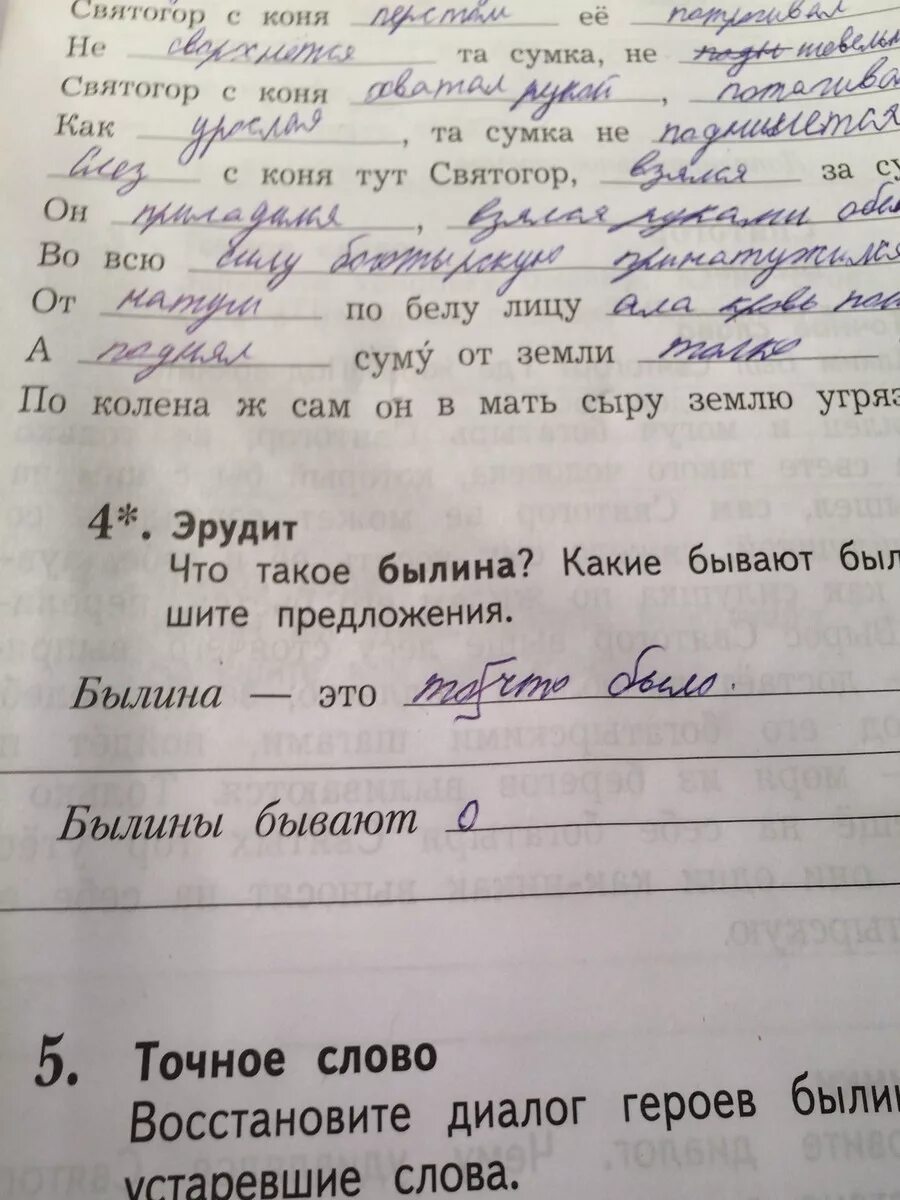 Святогор с коня перстом её потрогивал
Не сворхнется та сумка, не шевельн
Святогор с коня хватал рукой, потагива
Как урослая, та сумка не поднимется
Слез с коня тут Святогор, взялся за су
Он приладился, взялся руками обе
Во всю силу богатырскую принатужился
От натуги по белу лицу ала кровь пош
А поднял суму́ от земли только
По колена ж сам он в мать сыру землю угряз
4*. Эрудит
Что такое былина? Какие бывают был
шите предложения.
Былина — это то, что было.
Былины бывают о
5. Точное слово
Восстановите диалог героев былин
устаревшие слова.